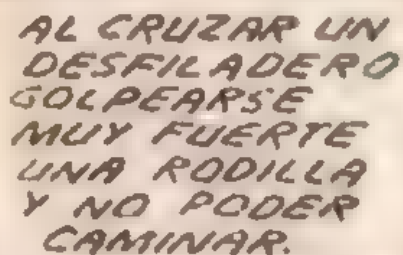 AL CRUZAR UN
DESFILADERO
GOLPEARSE
MUY FUERTE
UNA RODILLA
Y NO PODER
CAMINAR.